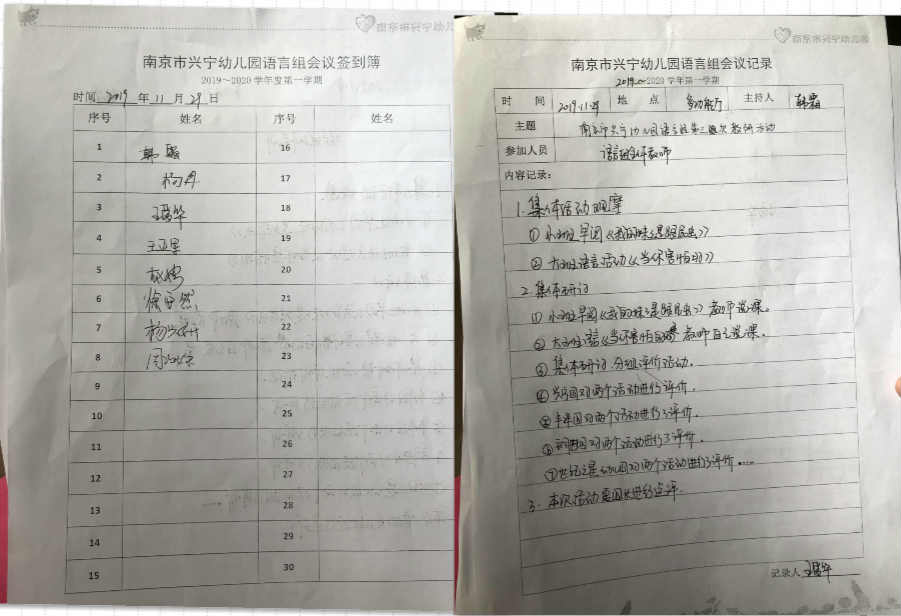 南京市兴宁幼儿园语言组会议签到簿
2019～2020学年度第一学期
时间 2019 年 11 月 29 日
序号 姓名 序号 姓名
1 韩 16
2 杨丹 17
3 王 华 18
4 王亚星 19
5 20
6 徐 然 21
7 杨 22
8 周 23
9 24
10 25
11 26
12 27
13 28
14 29
15 30
南京市兴宁幼儿园
南京市兴宁幼儿园语言组会议记录
2019～2020学年第一学期
时 间 2019.11.29 地 点 多功能厅 主持人 韩
主题 南京市兴宁幼儿园语言组第三次教研活动
参加人员 语言组全体教师
内容记录：
1. 集体活动观摩
① 小班早阅《我的妹妹是跟屁虫》
② 大班语言活动《当你害怕时》
2. 集体研讨
① 小班早阅《我的妹妹是跟屁虫》教师说课。
② 大班语言《当你害怕时》教师自己说课。
③ 集体研讨，分组评价活动。
园对两个活动进行评价。
园对两个活动进行了评价。
园对两个活动进行了评价。
⑦ 世纪之星幼儿园对两个活动进行了评价……
3. 本次活动 园长进行点评。
记录人 王 华